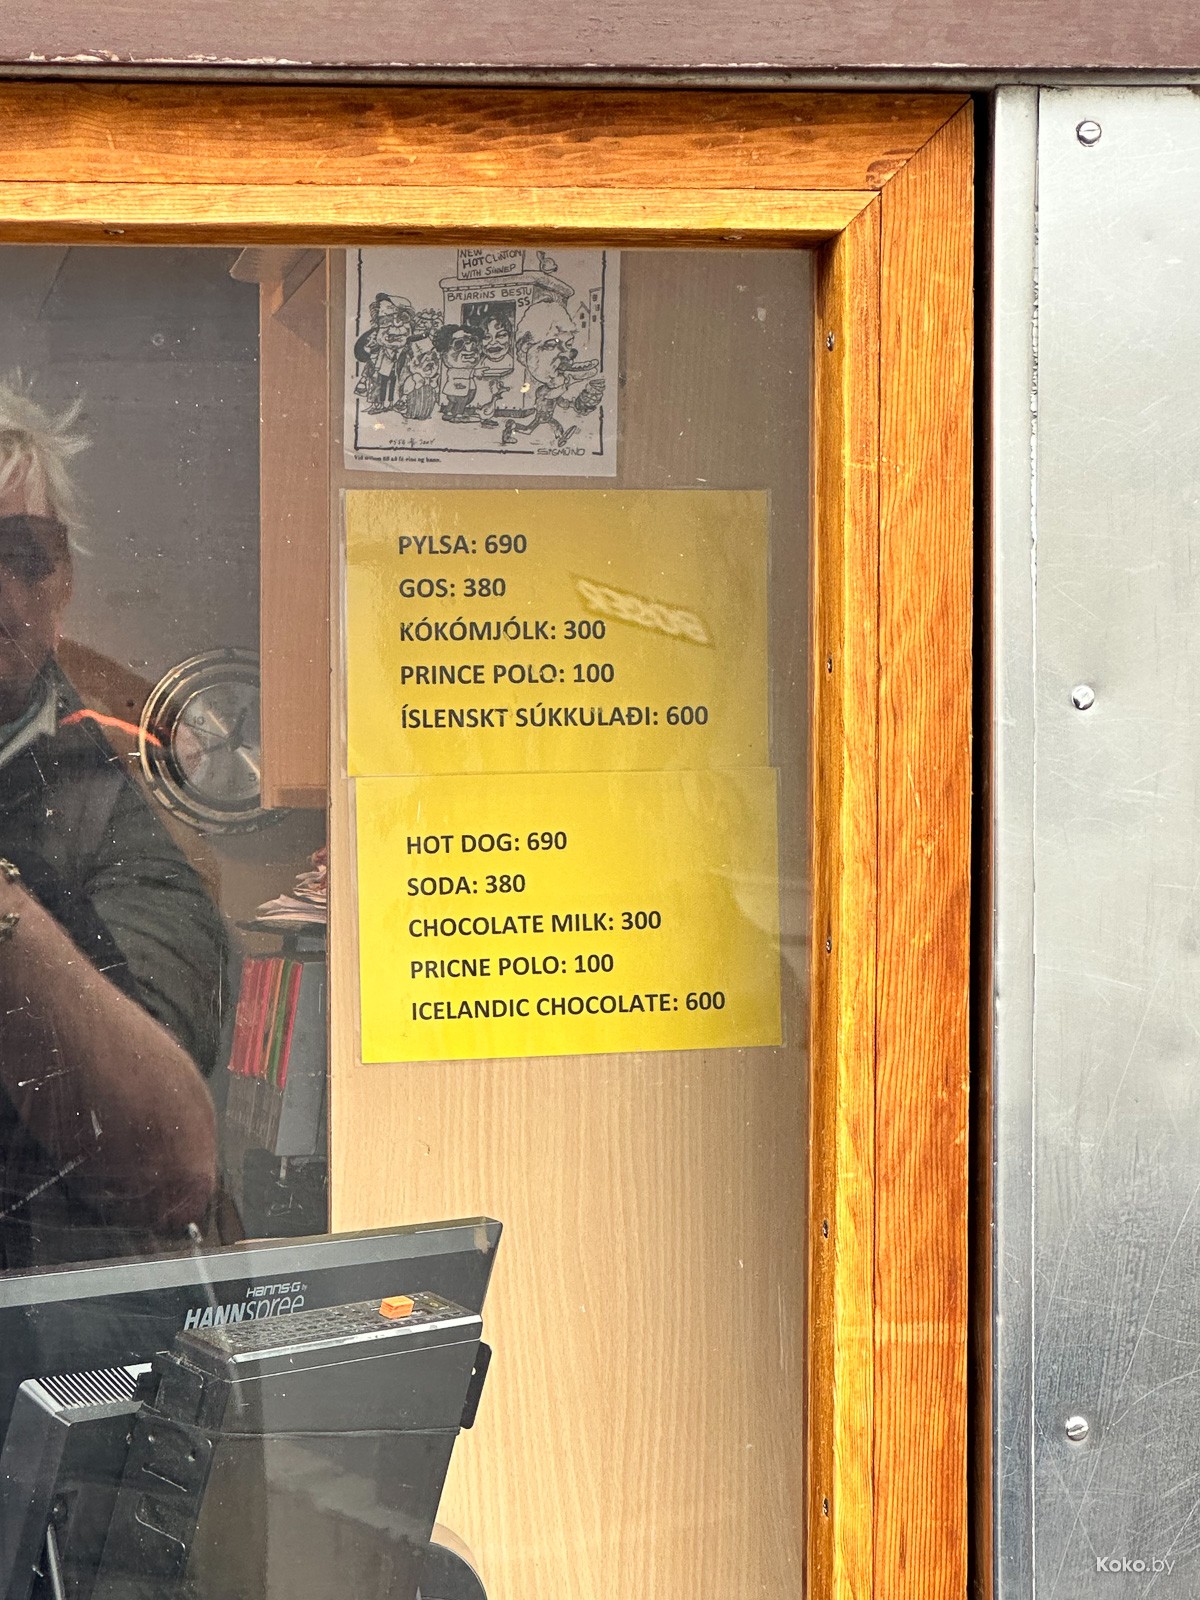 NEW
HOT CLINTON
WITH SINNEP
BÆJARINS BESTU
SS
SIGMÚND
PYLSA: 690
GOS: 380
KÓKÓMJÓLK: 300
PRINCE POLO: 100
ÍSLENSKT SÚKKULAÐI: 600
HOT DOG: 690
SODA: 380
CHOCOLATE MILK: 300
PRICNE POLO: 100
ICELANDIC CHOCOLATE: 600
HANNS·G
HANNSpree
Koko.by